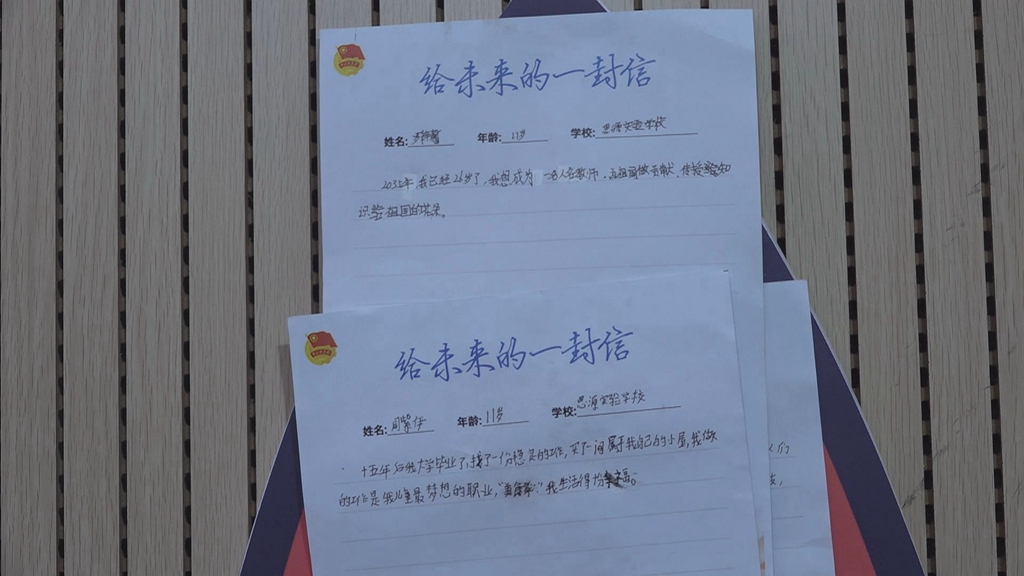 给未来的一封信
姓名: 年龄: 11岁 学校: 思源实验学校
2032年我已经26岁了，我想成为一名人名教师，为祖国做贡献，传授知
识给祖国的花朵。
给未来的一封信
姓名: 周紫伊 年龄: 11岁 学校: 思源实验学校
十五年后我大学毕业了，找了一份稳定的工作，买了一间属于我自己的小屋，我做
的工作是我儿童最梦想的职业，我生活得份幸福。
人们